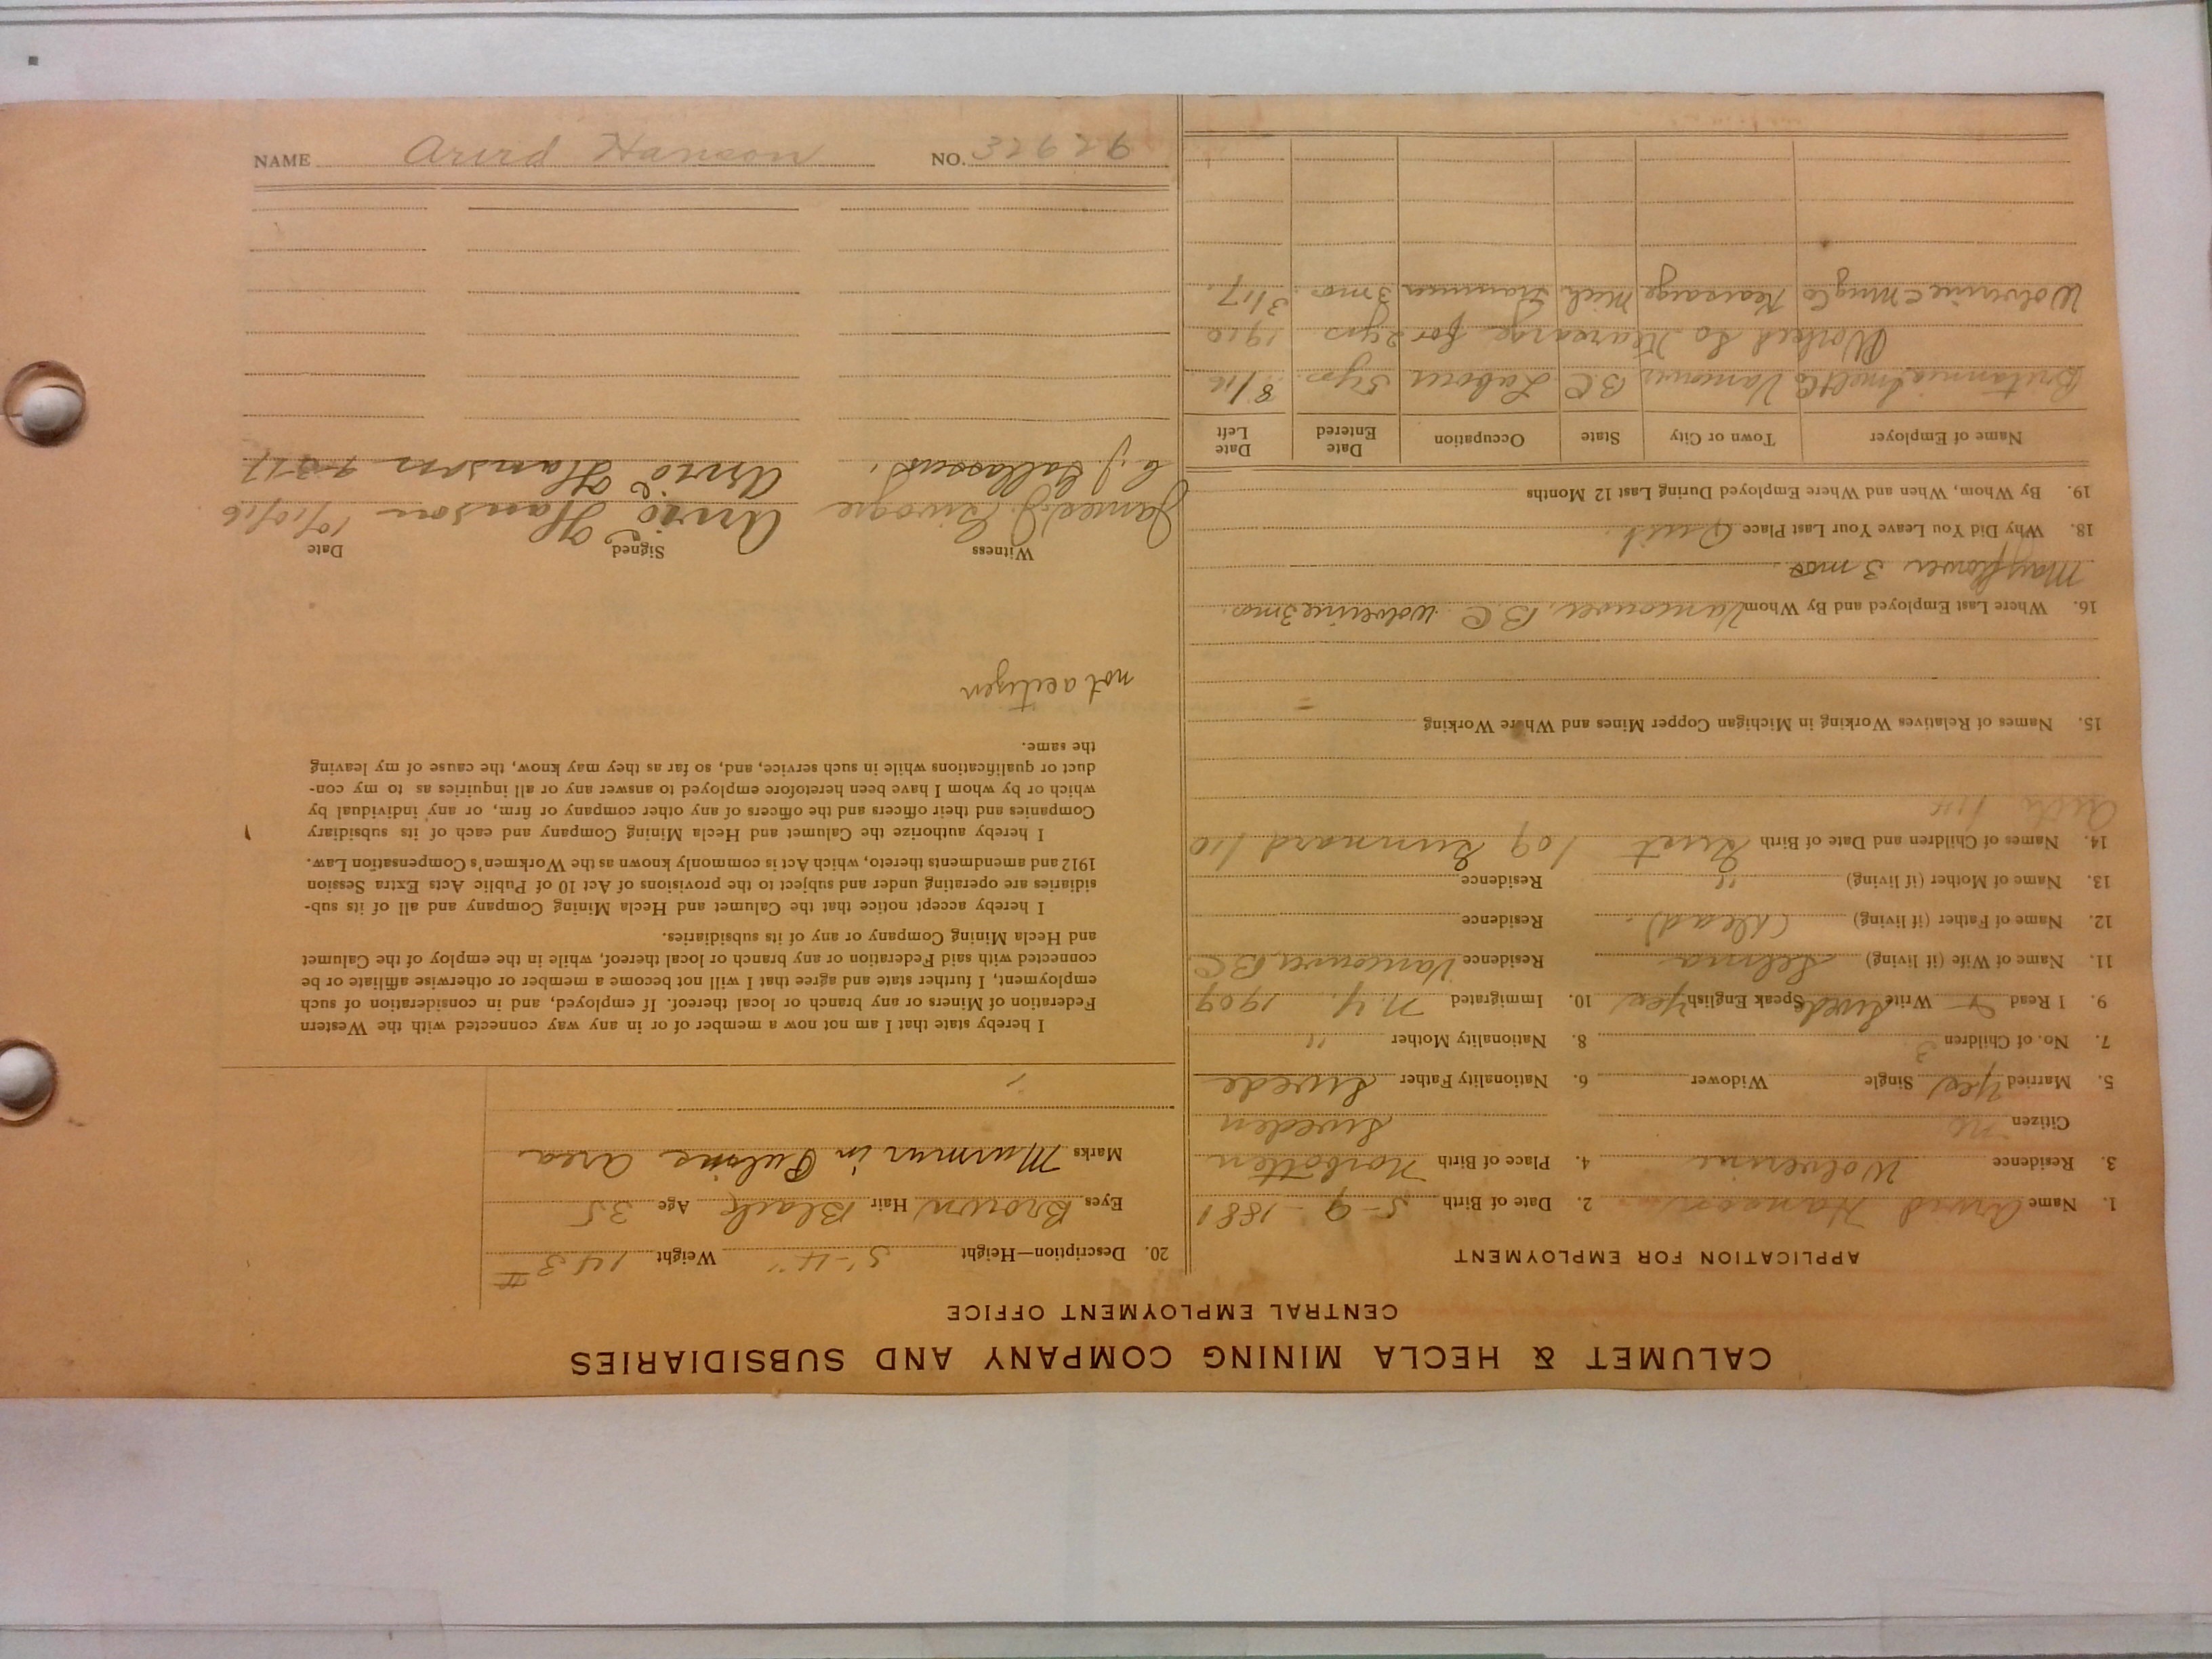 CALUMET & HECLA MINING COMPANY AND SUBSIDIARIES
CENTRAL EMPLOYMENT OFFICE
APPLICATION FOR EMPLOYMENT
1. Name Arvid Hanson 2. Date of Birth 5-9-1881
3. Residence Wolverine 4. Place of Birth Norbotten
Citizen no Sweden
5. Married Yes Single Widower 6. Nationality Father Swede
7. No. of Children 3 8. Nationality Mother "
9. I Read & Write Swede Speak English Yes 10. Immigrated N.Y. 1909
11. Name of Wife (if living) Selma Residence Vancouver, BC
12. Name of Father (if living) (dead) Residence
13. Name of Mother (if living) " Residence
14. Names of Children and Date of Birth 109 110
15. Names of Relatives Working in Michigan Copper Mines and Where Working
16. Where Last Employed and By Whom Vancouver, B.C. Wolverine 3 mo.
Mayflower 3 mos
18. Why Did You Leave Your Last Place Quit.
19. By Whom, When and Where Employed During Last 12 Months
Name of Employer Town or City State Occupation Date Entered Date Left
Britannia Smelt Co Vancouver B.C Laborer 5 yrs. 8/16
Worked So. Kearsarge for 2 yrs 1910
Wolverine Mng Co Kearsarge Mich Trammer 3 mo. 3/17.
20. Description—Height 5'-4" Weight 143#
Eyes Brown Hair Black Age 35
Marks Murmur in Pulmo Area
I hereby state that I am not now a member of or in any way connected with the Western
Federation of Miners or any branch or local thereof. If employed, and in consideration of such
employment, I further state and agree that I will not become a member or otherwise affiliate or be
connected with said Federation or any branch or local thereof, while in the employ of the Calumet
and Hecla Mining Company or any of its subsidiaries.
I hereby accept notice that the Calumet and Hecla Mining Company and all of its sub-
sidiaries are operating under and subject to the provisions of Act 10 of Public Acts Extra Session
1912 and amendments thereto, which Act is commonly known as the Workmen's Compensation Law.
I hereby authorize the Calumet and Hecla Mining Company and each of its subsidiary
Companies and their officers and the officers of any other company or firm, or any individual by
which or by whom I have been heretofore employed to answer any or all inquiries as to my con-
duct or qualifications while in such service, and, so far as they may know, the cause of my leaving
the same.
not a citizen
Witness Signed Date
James J. Arvid Hanson 10/10/16
Arvid Hanson
NAME Arvid Hanson NO. 32626